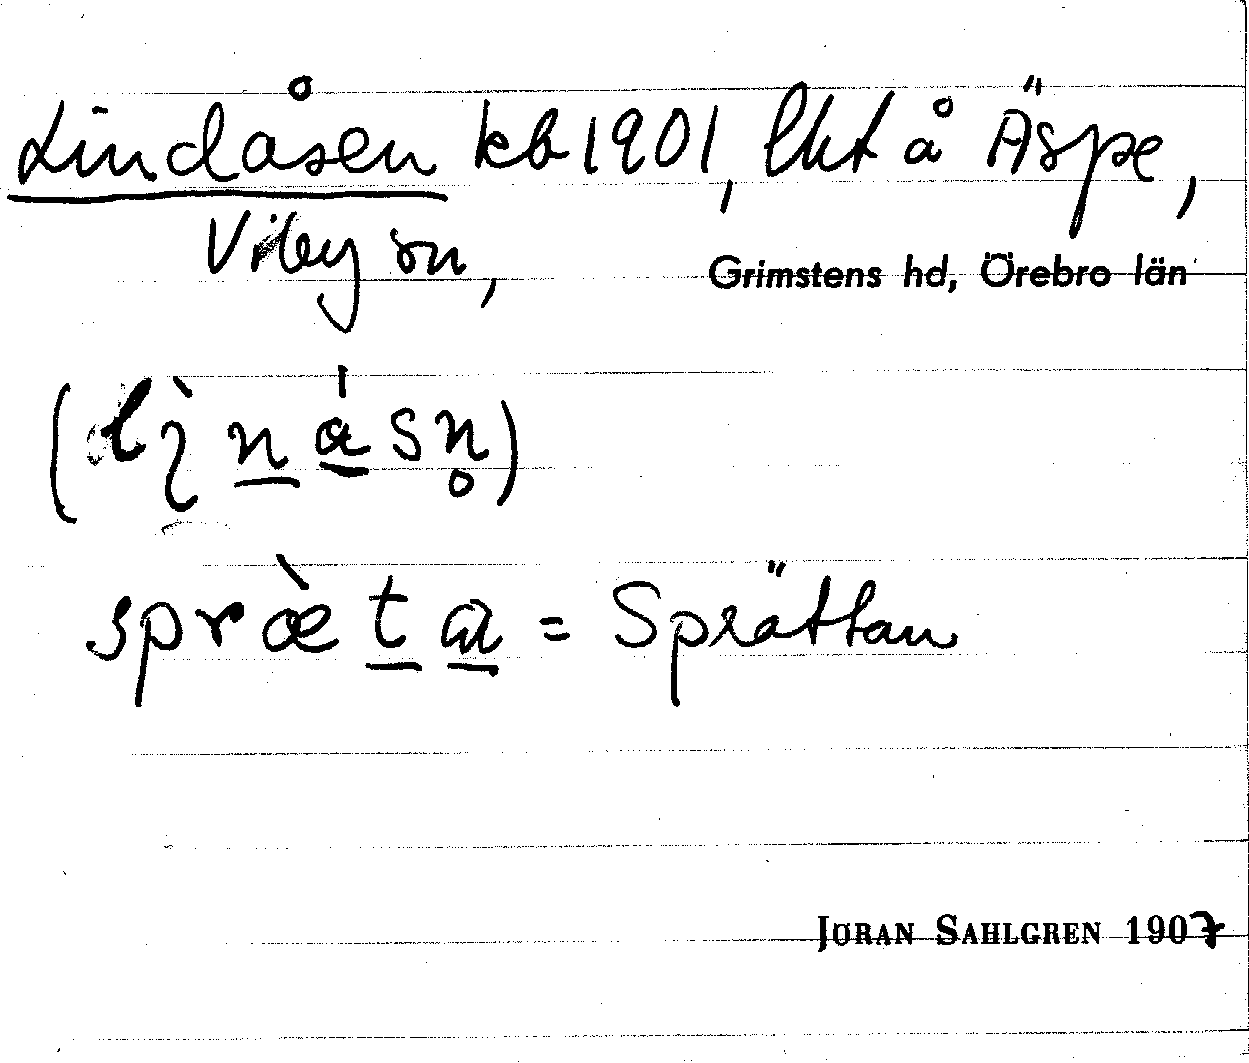 Lindåsen kb 1901, lht å Äspe,
Viby sn,
Grimstens hd, Örebro län
spræ̀ta = Sprättan
JÖRAN SAHLGREN 1907